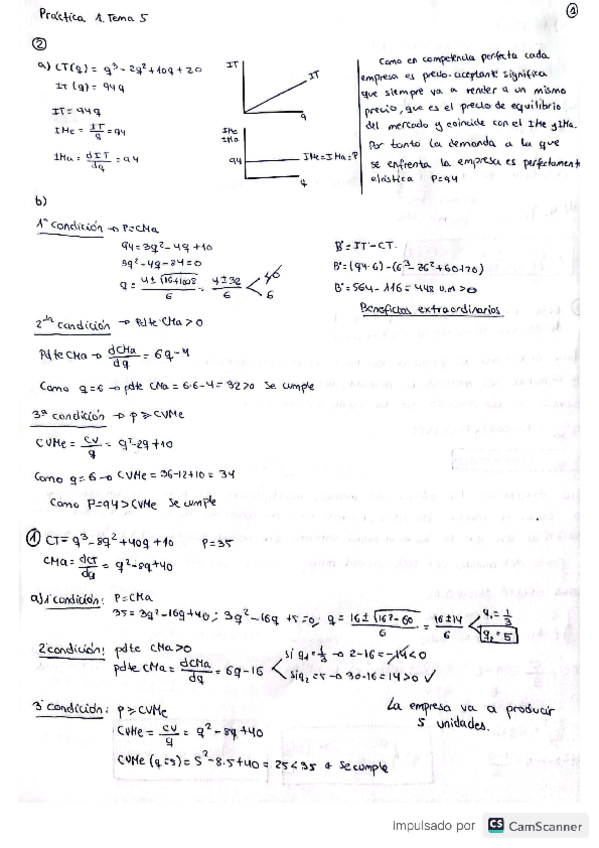 Práctica 1. Tema 5
1
2
a) CT(q) = q³ - 2q² + 10q + 20
IT(q) = 94q
IT = 94q
IMe = IT/q = 94
IMa = dIT/dq = 94
IT
IT
q
IMe
IMa
94
IMe = IMa = P
q
Como en competencia perfecta cada
empresa es precio-aceptante significa
que siempre va a vender a un mismo
precio, que es el precio de equilibrio
del mercado y coincide con el IMe y IMa.
Por tanto la demanda a la que
se enfrenta la empresa es perfectamente
elástica P=94
b)
1ª condición → P=CMa
94 = 3q² - 4q + 10
3q² - 4q - 84 = 0
q = 4 ± √16+1008 / 6 = 4 ± 32 / 6
6
Bº = IT - CT.
Bº = (94·6) - (6³ - 2·6² + 60 + 20)
Bº = 564 - 116 = 448 u.m > 0
Beneficios extraordinarios
2da condición → Pdte CMa > 0
Pdte CMa → dCMa/dq = 6q - 4
Como q=6 → pdte CMa = 6·6-4 = 32 > 0 se cumple
3ª condición → p ≥ CVMe
CVMe = CV/q = q² - 2q + 10
Como q=6 → CVMe = 36-12+10 = 34
Como P=94 > CVMe se cumple
1 CT = q³ - 8q² + 40q + 10 P=35
CMa = dCT/dq = q² - 8q + 40
a) 1 condición: P=CMa
35 = 3q² - 16q + 40; 3q² - 16q + 5 = 0; q = 16 ± √16² - 60 / 6 = 16 ± 14 / 6 q₁ = 1/3
q₂ = 5
2 condición: pdte CMa > 0
pdte CMa = dCMa/dq = 6q - 16
si q₁ = 1/3 → 2-16 = -14 < 0
si q₂ = 5 → 30-16 = 14 > 0 ✓
3 condición: p ≥ CVMe
CVMe = CV/q = q² - 8q + 40
CVMe (q=5) = 5² - 8·5 + 40 = 25 < 35 se cumple
La empresa va a producir
5 unidades.
Impulsado por CS CamScanner